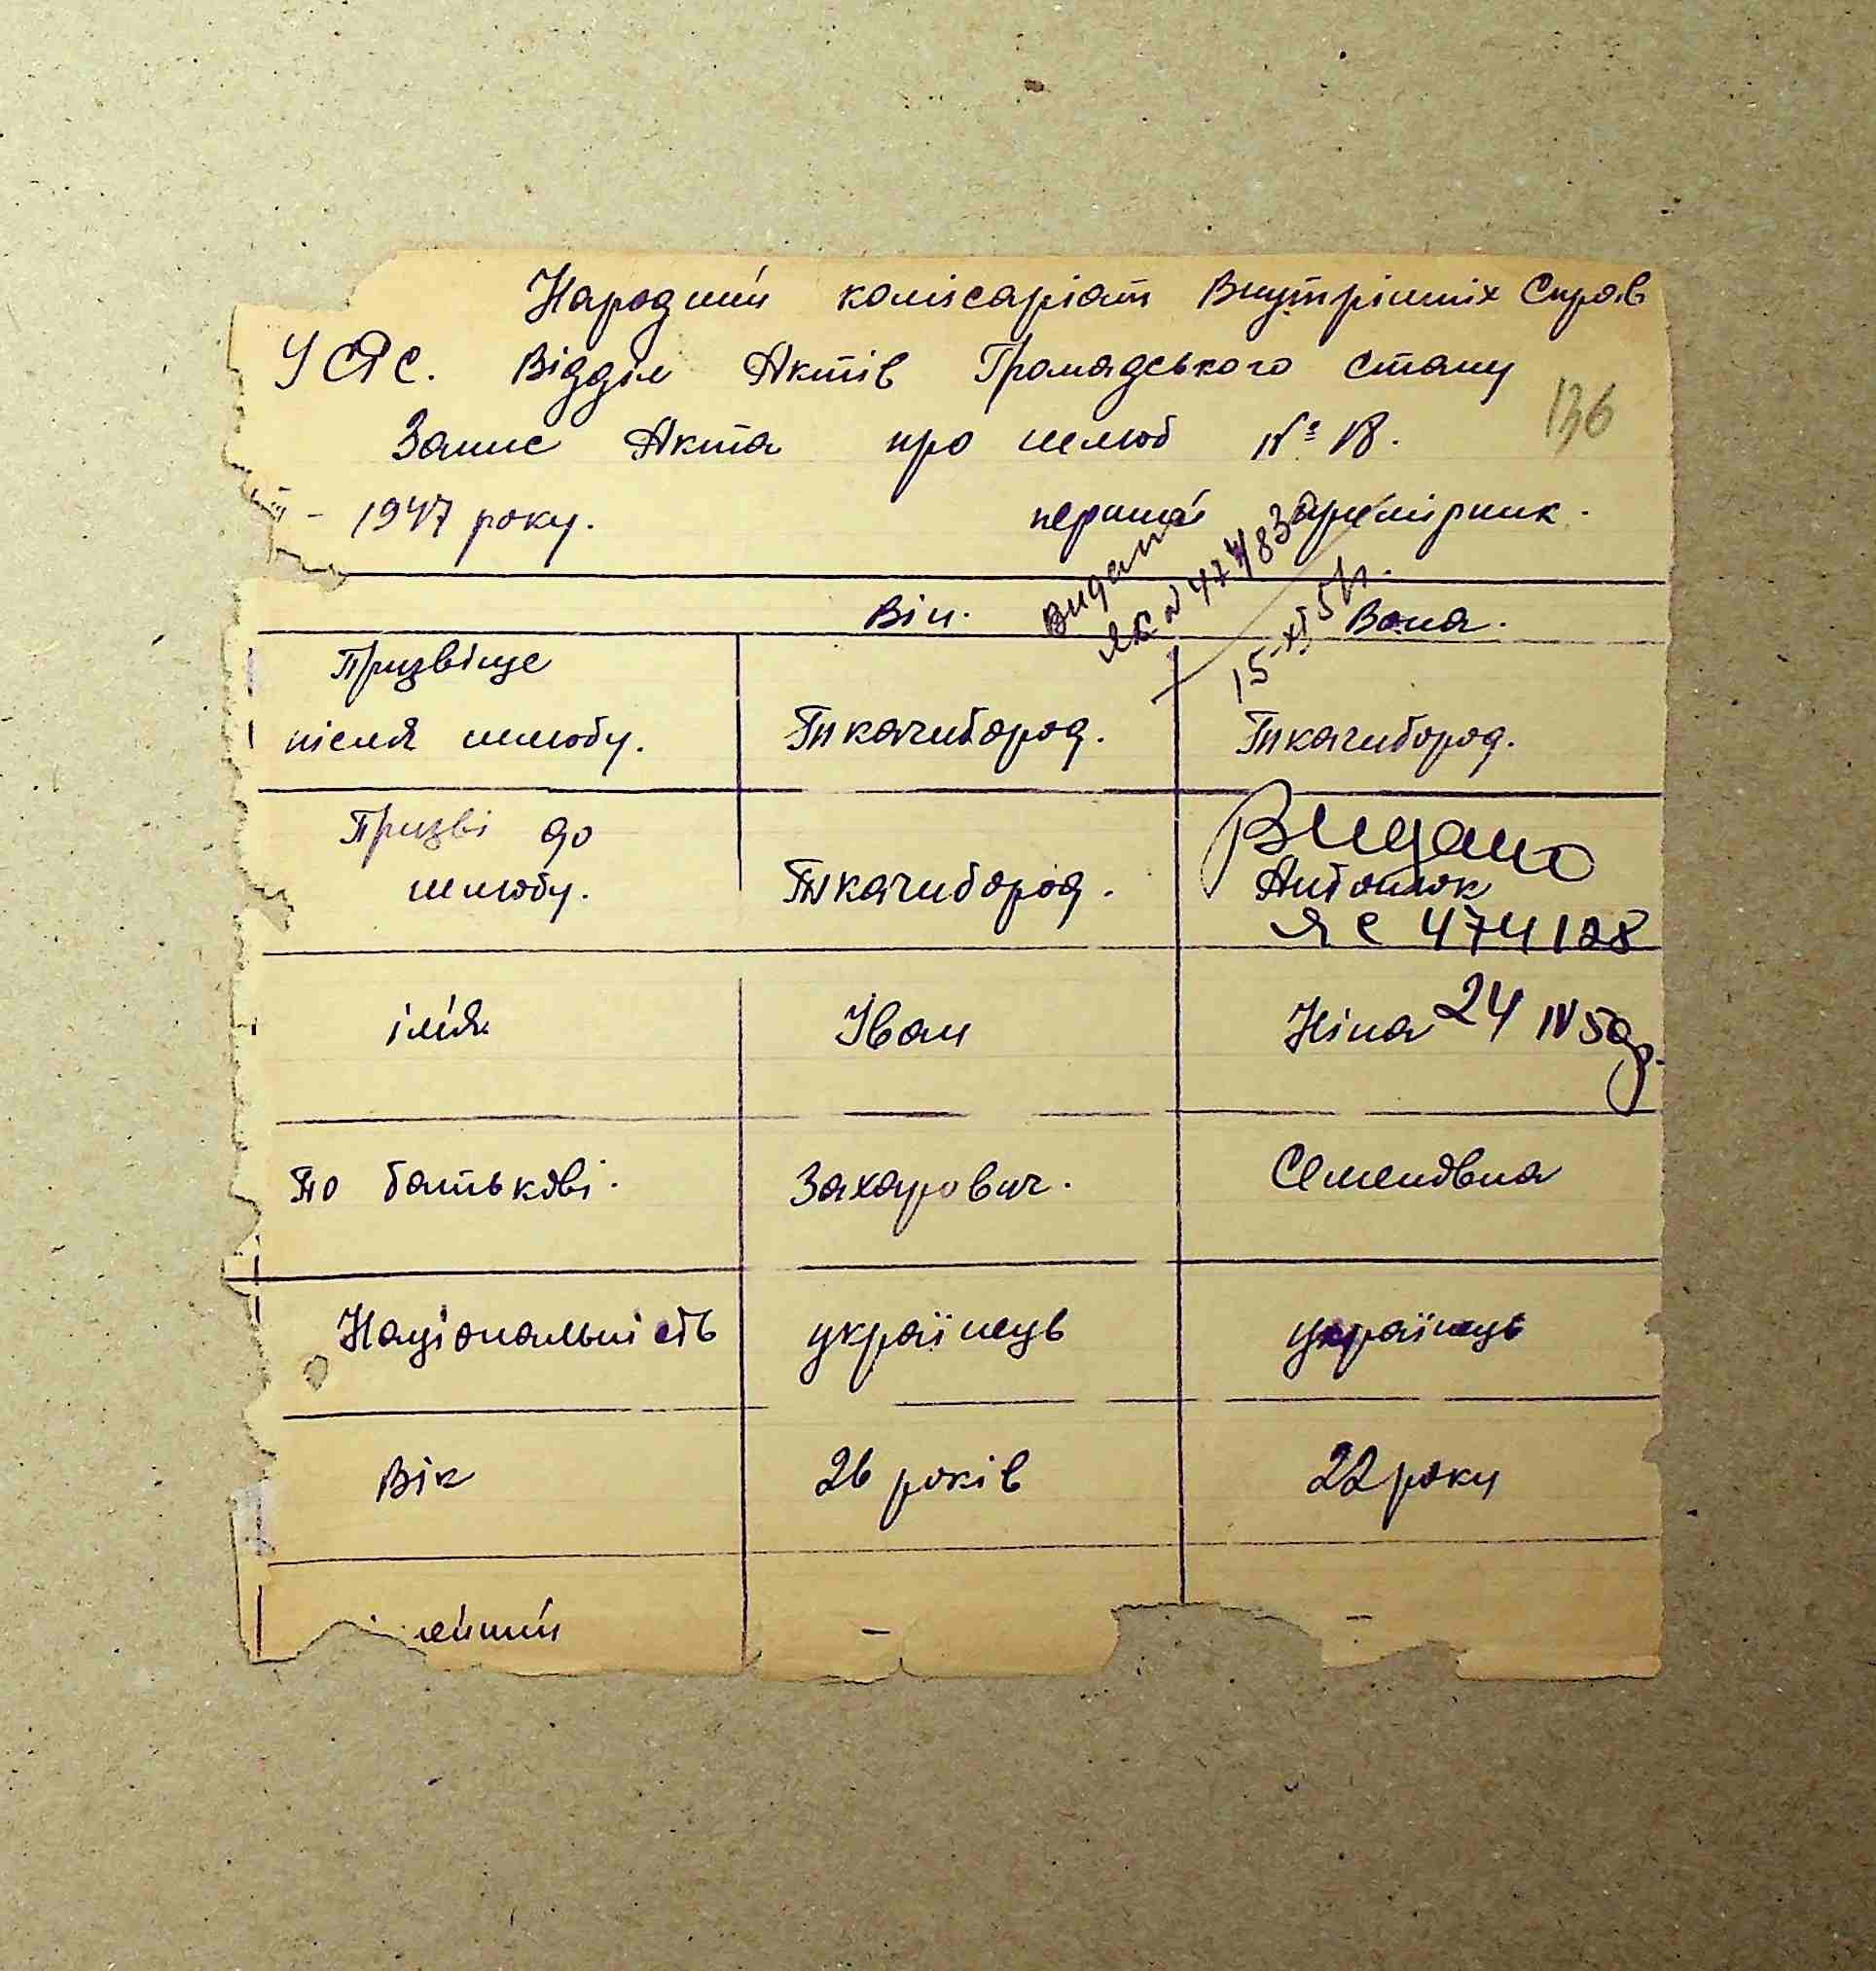 Народний комісаріат Внутрішніх Справ
УСРС. Відділ Актів Громадського стану
136
Запис Акта про шлюб № 18.
- 1947 року. перший примірник.
Видано
ЯС № 477483
15-XI 51р.
Він. Вона.
Прізвіще
після шлюбу. Ткачибород. Ткачибород.
Прізві до
шлюбу. Ткачибород. Антонюк
Видано
ЯС 474128
24 IV 50р.
імія Іван Ніна
По батькові. Захарович. Семенівна
Національність українець українець
Вік 26 років 22 року
- -